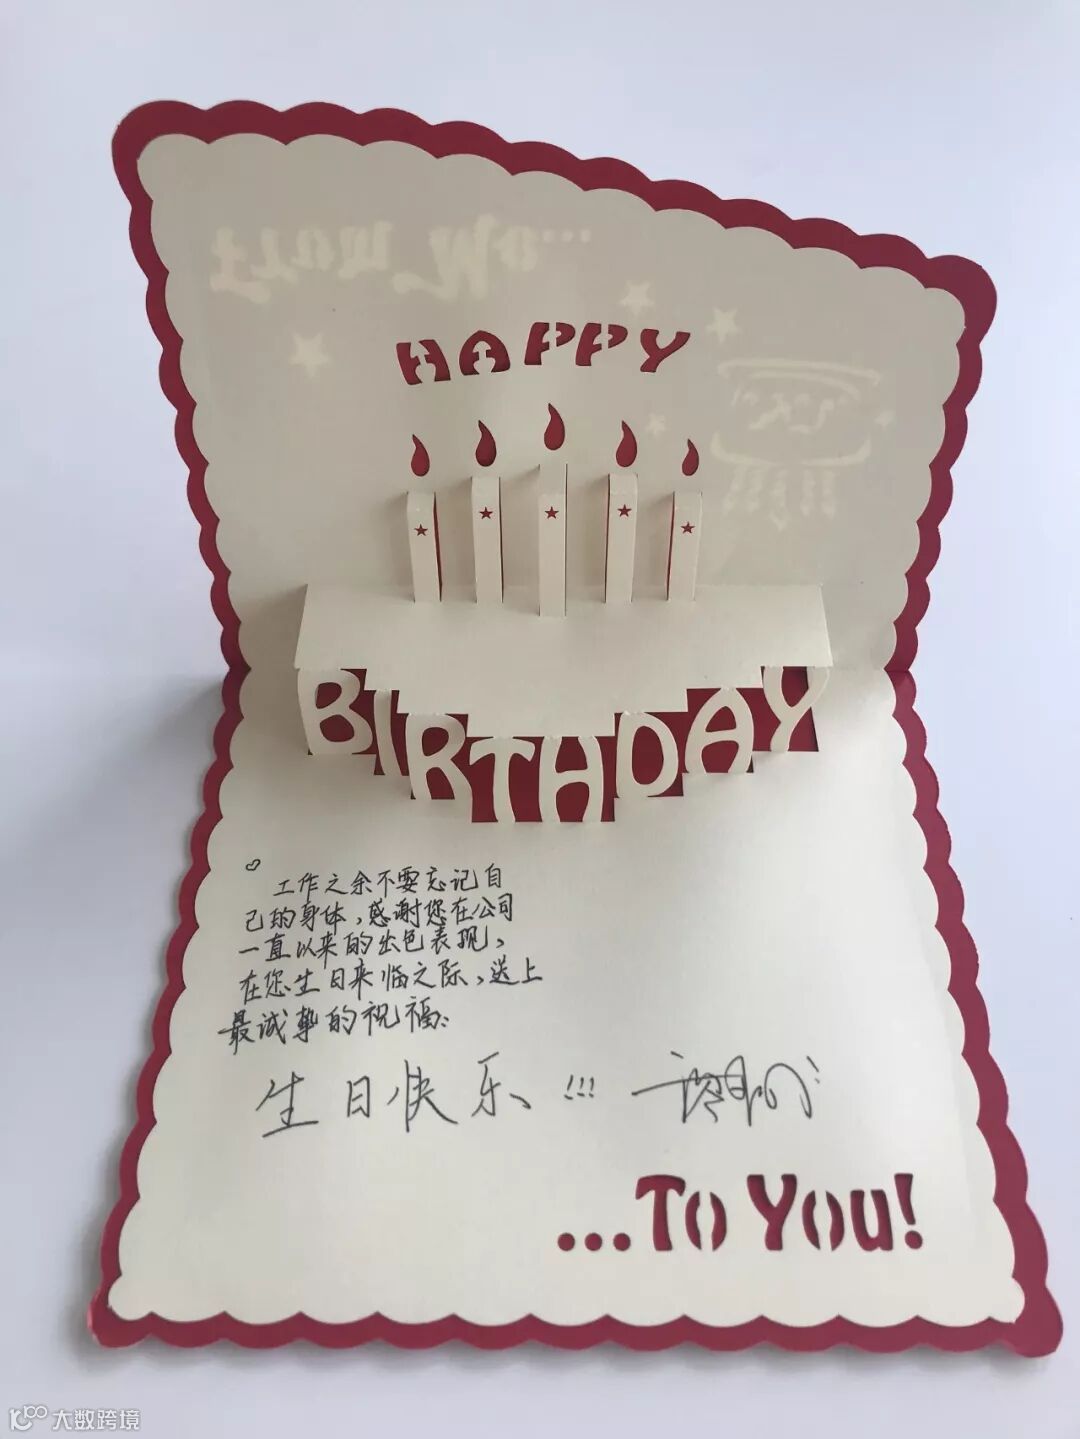 HAPPY
BIRTHDAY
工作之余不要忘记自
己的身体，感谢您在公司
一直以来的出色表现，
在您生日来临之际，送上
最诚挚的祝福：
生日快乐!!!
...To You!
大数跨境